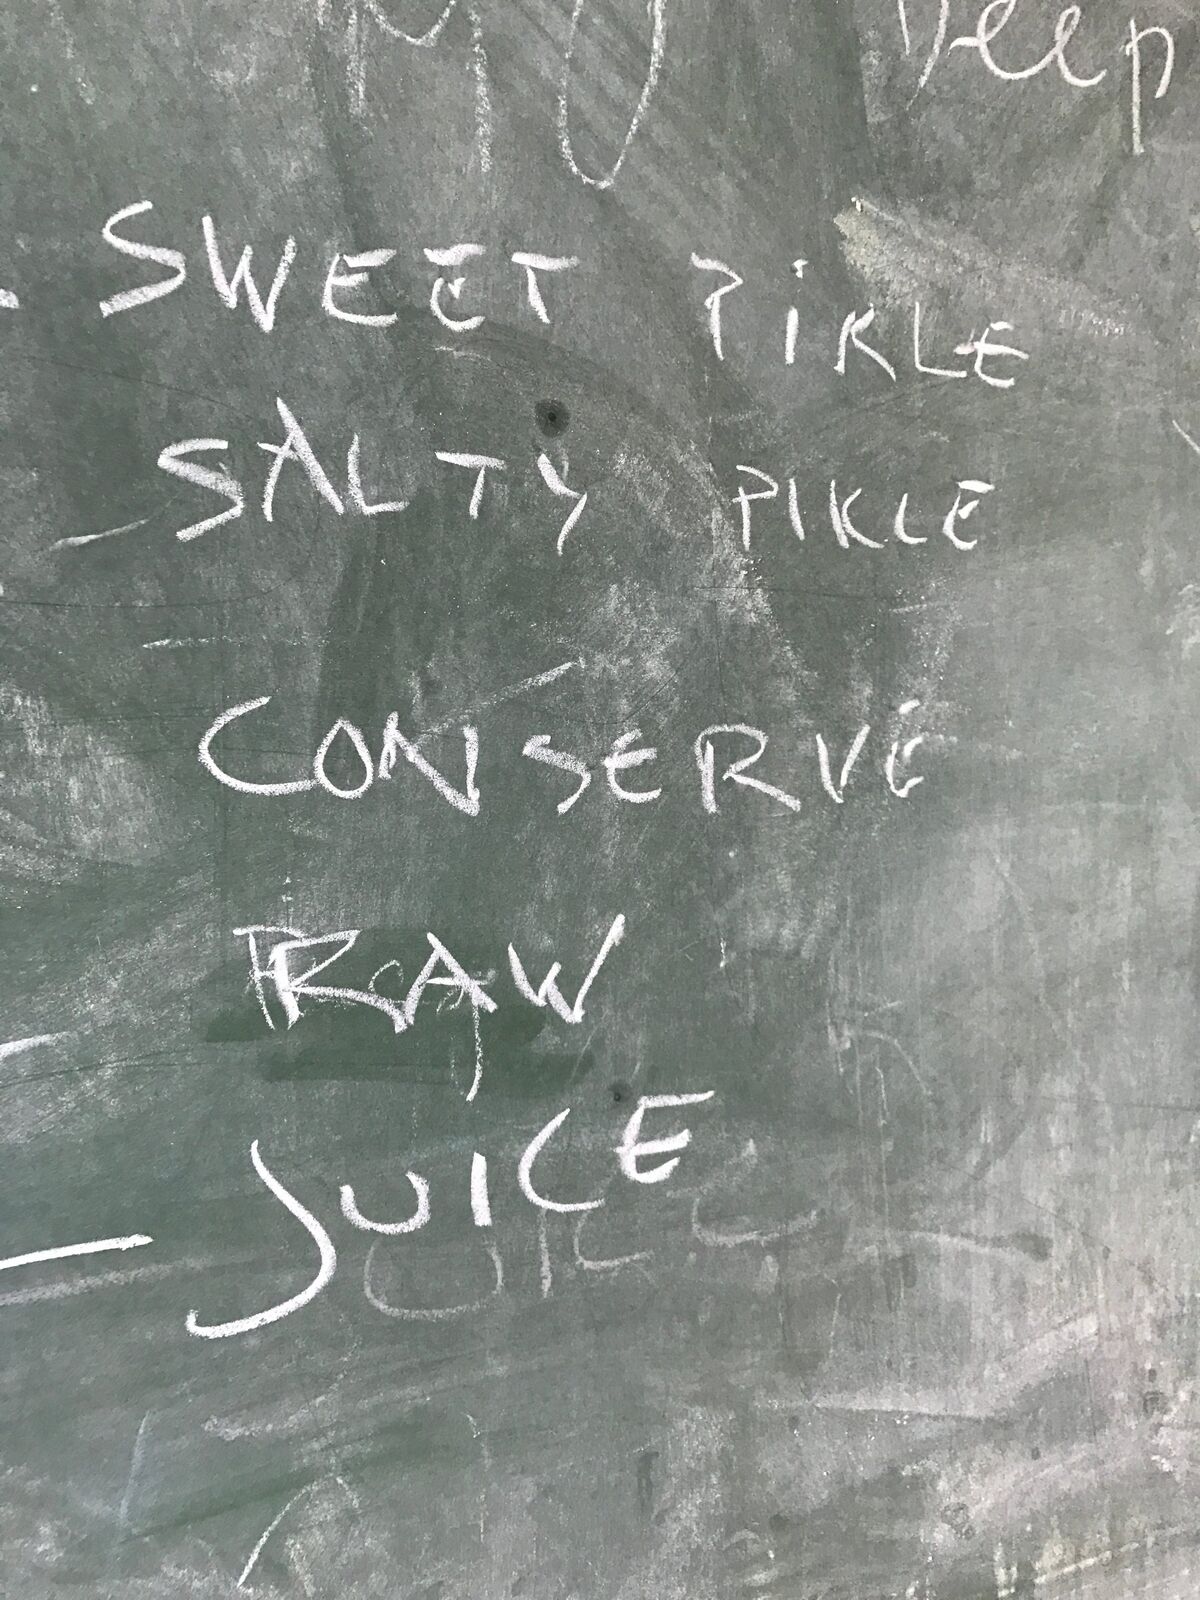 Deep
SWEET PiKLE
SALTY PIKLE
CONSERVE
RAW
JUICE